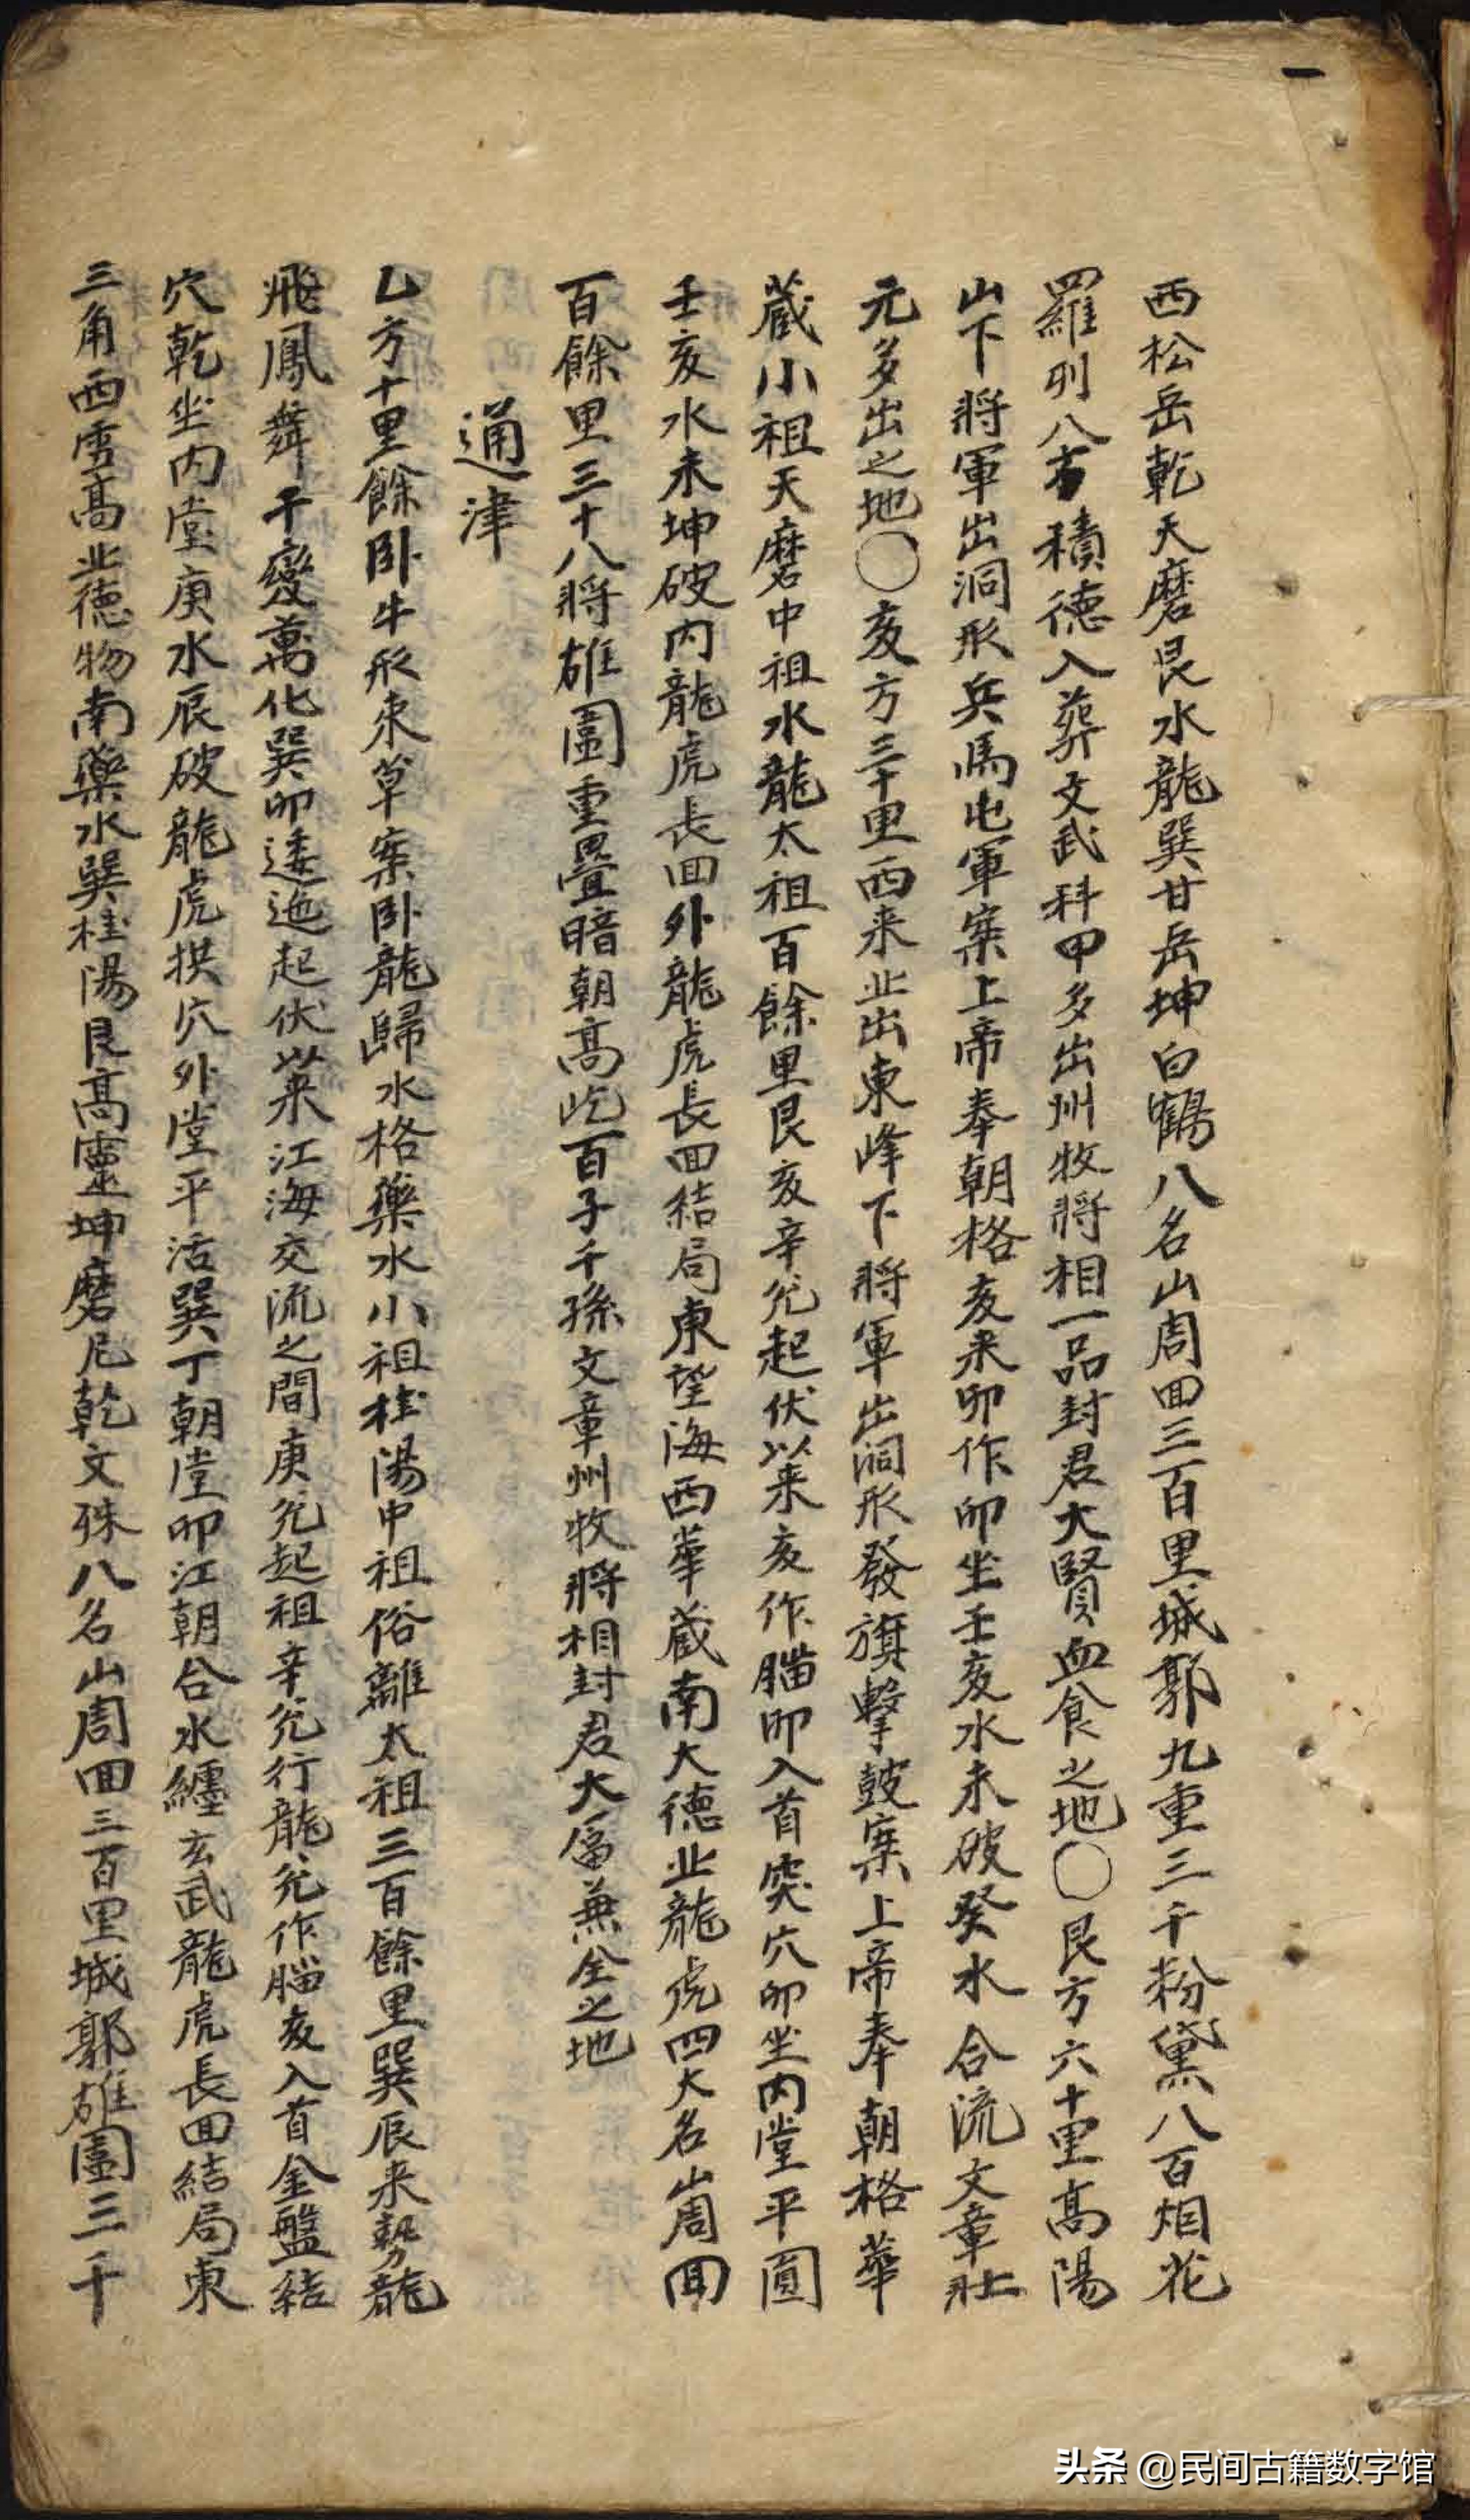 西松岳乾天磨艮水龍巽甘岳坤白鶴八名山周回三百里城郭九重三千粉黛八百烟花
羅列八方積德入葬文武科甲多出州牧將相一品封君大賢血食之地〇艮方六十里高陽
山下將軍出洞形兵馬屯軍案上帝奉朝格亥来卯作卯坐壬亥水未破癸水合流文章壯
元多出之地〇亥方三十里西来北出東峰下將軍出洞形發旗擊鼓案上帝奉朝格華
蔵小祖天磨中祖水龍太祖百餘里艮亥辛兊起伏以来亥作腦卯入首突穴卯坐内堂平圓
壬亥水未坤破内龍虎長回外龍虎長回結局東望海西華蔵南大德北龍虎四大名山周回
百餘里三十八將雄圍重疊暗朝高屹百子千孫文章州牧將相封君大富兼全之地
通津
乙方十里餘卧牛形束草案卧龍歸水格藥水小祖桂陽中祖俗離太祖三百餘里巽辰来勢龍
飛鳳舞千變萬化巽卯逶迤起伏以来江海交流之間庚兊起祖辛兊行龍兊作腦亥入首金盤結
穴乾坐内堂庚水辰破龍虎拱穴外堂平活巽丁朝堂卯江朝合水纏玄武龍虎長回結局東
三角西雪高北德物南藥水巽桂陽艮高靈坤磨尼乾文殊八名山周回三百里城郭雄圍三千
头条 @民间古籍数字馆